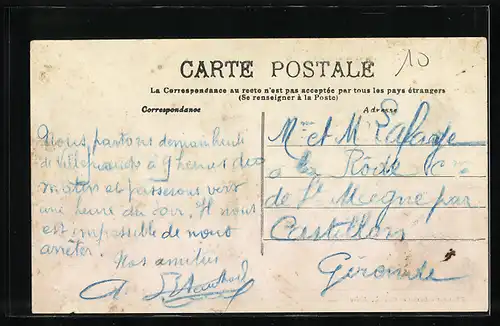 10
CARTE POSTALE
La Correspondance au recto n'est pas acceptée par tous les pays étrangers
(Se renseigner à la Poste)
Correspondance
Adresse
Nous partons demain lundi
de à 9 heures du
matin et passerons vers
une heure du soir. Il nous
est impossible de nous
arrêter.
Nos amitiés
Mme et M Lafage
à la Rode Cne
de St Magne par
Castillon
Gironde